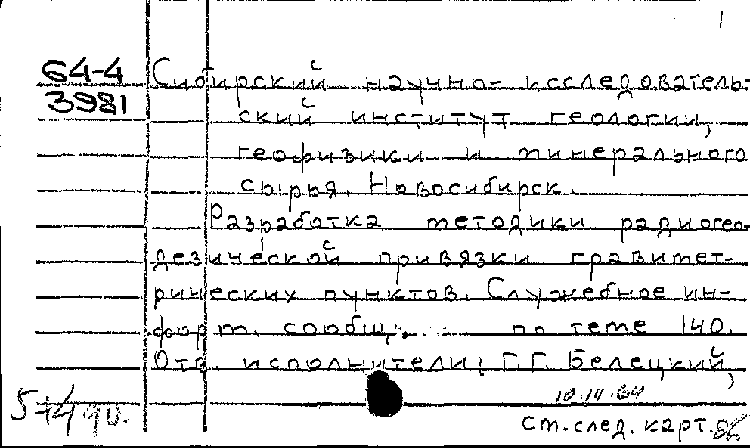 1
64-4
3981
Сибирский научно-исследователь-
ский институт геологии,
геофизики и минерального
сырья. Новосибирск.
Разработка методики радиогео-
дезической привязки гравимет-
рических пунктов. Служебное ин-
форм. сообщ. по теме 140.
Отв. исполнители: Г.Г. Белецкий,
ст. след. карт.